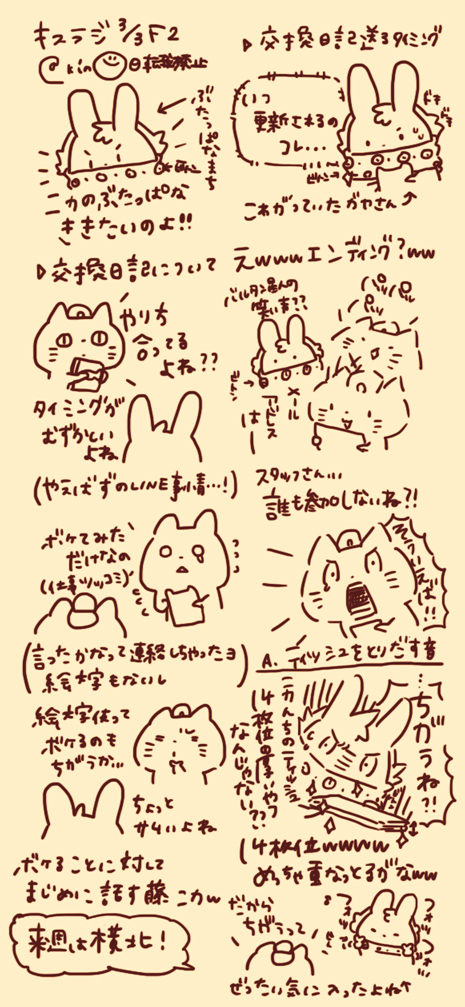 キスラジ 3/3 F2
転載禁止
ぶたっぱなきもち
カのぶたっぱな
ききたいのよ!!
▷交換日記について
やりち
合ってる
よね??
タイミングが
むずかしい
よね
(やえばずのLINE事情…!)
ボケてみた
だけなの
(仕事ツッコミ)
(言ったかなって連絡しちゃったヨ
絵文字もないし)
絵文字使って
ボケるのも
ちがうか…
ちょっと
サムいよね
ボケることに対して
まじめに話す藤ニカw
来週は横北!
▷交換日記送るタイミング
いつ
更新されるの
コレ…
ドキ
ドキ
これがっていたガヤさん
えwwwエンディング?ww
バルタン星人の
笑い声??
パパパ
メール
アドレス
はー
スタッフさん…
誰も参加しないね?!
そういえば…!!
A. ティッシュをとりだす音
…ちがうね?!
ニカんちのティッシュ
14枚位の厚いやつ
なんじゃない??
14枚位wwww
めっちゃ重なっとるがなww
だから
ちがうって
フォッ
フォッ
フォッ
フォッ
ぜったい気に入ったよね